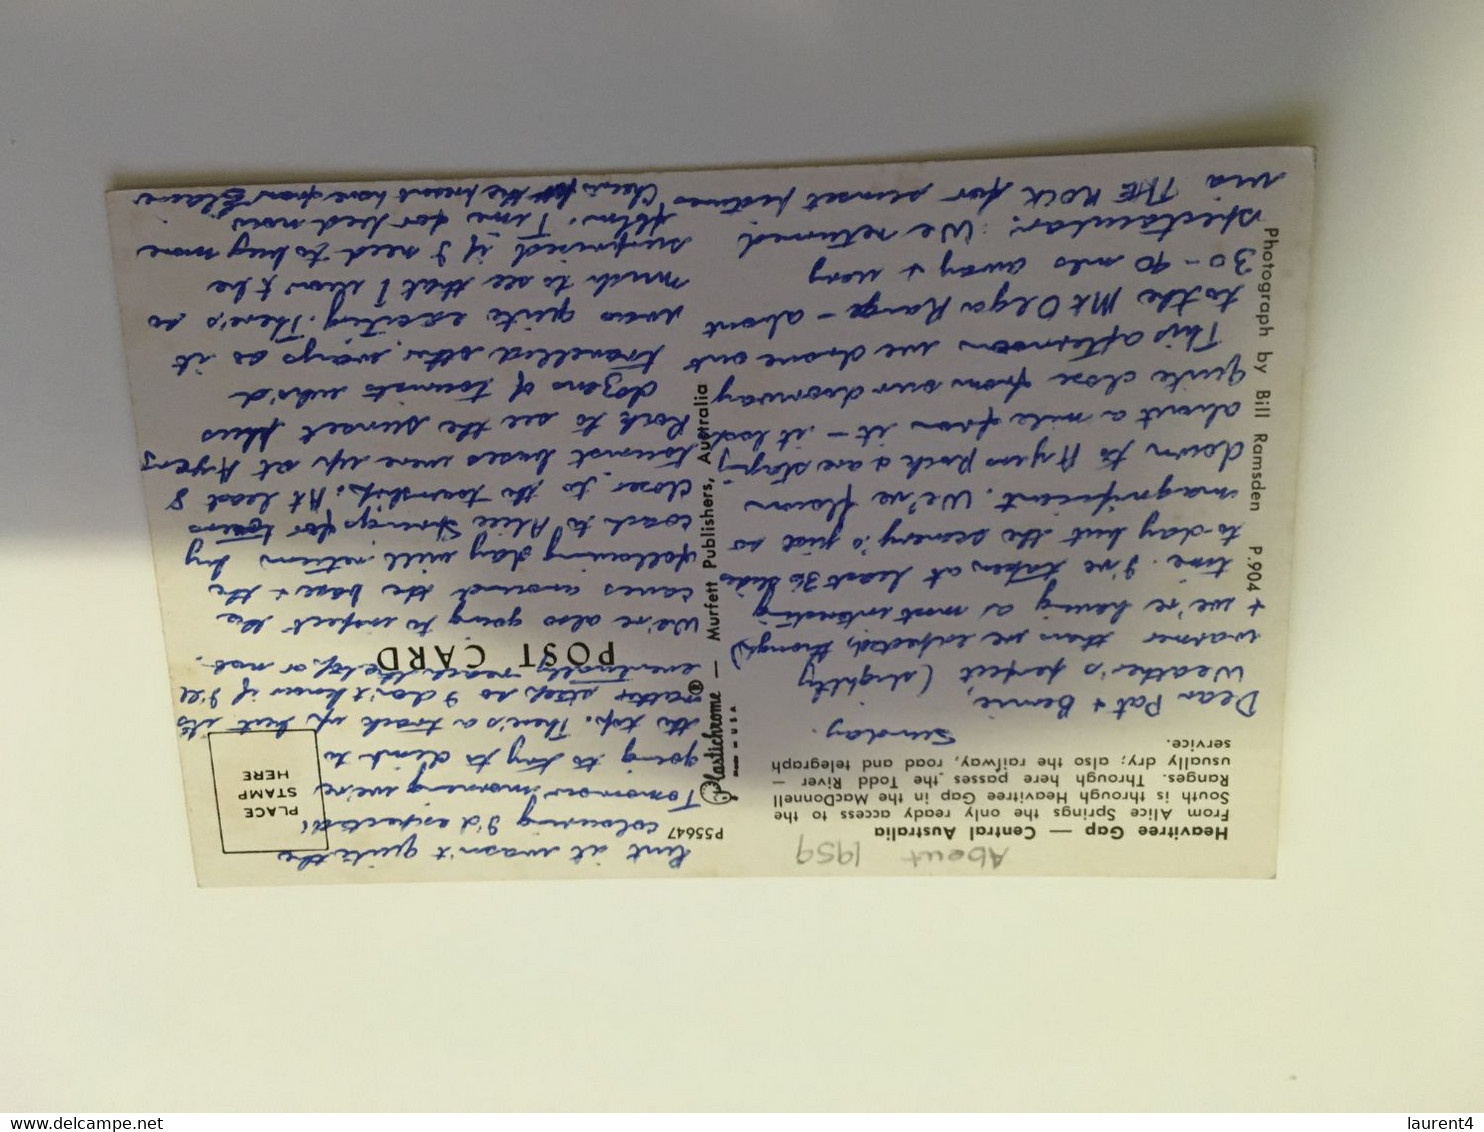 Heavitree Gap — Central Australia
From Alice Springs the only ready access to the
South is through Heavitree Gap in the MacDonnell
Ranges. Through here passes the Todd River —
usually dry; also the railway, road and telegraph
service.
About 1959
Sunday.
Dear Pat + Bernie,
Weather's perfect (slightly
warmer than we expected, though)
+ we're having a most interesting
time. I've taken at least 36 slides
to-day but the scenery's just so
magnificent. We've flown
down to Ayers Rock & are staying
about a mile from it – it looks
quite close from our doorway
This afternoon we drove out
to the Mt Olga Range – about
30-40 mls away + very
spectacular. We returned
via THE ROCK for sunset pictures
P55647
Plastichrome ®
Made in U S A
— Murfett Publishers, Australia
Photograph by Bill Ramsden P.904
POST CARD
PLACE
STAMP
HERE
but it wasn't quite the
colouring I'd expected!
Tomorrow morning we're
going to try to climb to
the top. There's a track up but it's
rather steep so I don't know if I'll
eventually reach the top or not.
We're also going to inspect the
caves around the base + the
following day will return by
coach to Alice Springs for
closer to the township. At least 8
tourist buses were up at Ayers
Rock to see the sunset plus
dozens of tourists who'd
travelled other ways so it
was quite exciting. There's so
much to see that I won't be
surprised if I need to buy more
film. Time for bed now
Cheerio for the present love from Elaine
laurent4
delcampe.net